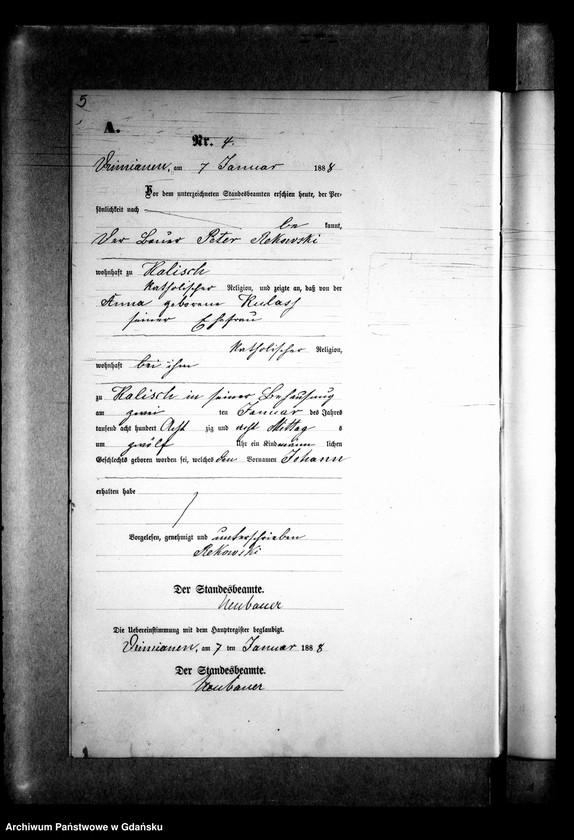 5
A.
Nr. 4.
am 7 Januar 1888
Vor dem unterzeichneten Standesbeamten erschien heute, der Per-
sönlichkeit nach
be kannt,
Der Bauer Peter Rekowski
wohnhaft zu Kalisch
katholischer Religion, und zeigte an, daß von der
Anna geborene Kulas
seiner Ehefrau
katholischer Religion,
wohnhaft bei ihm
zu Kalisch in seiner Behausung
am zwei ten Januar des Jahres
tausend acht hundert Acht zig und acht Mittag s
um zwölf Uhr ein Kind männ lichen
Geschlechts geboren worden sei, welches den Vornamen Johann
erhalten habe
Vorgelesen, genehmigt und unterschrieben
Rekowski
Der Standesbeamte.
Neubauer
Die Uebereinstimmung mit dem Hauptregister beglaubigt.
am 7 ten Januar 1888
Der Standesbeamte.
Neubauer
Archiwum Państwowe w Gdańsku